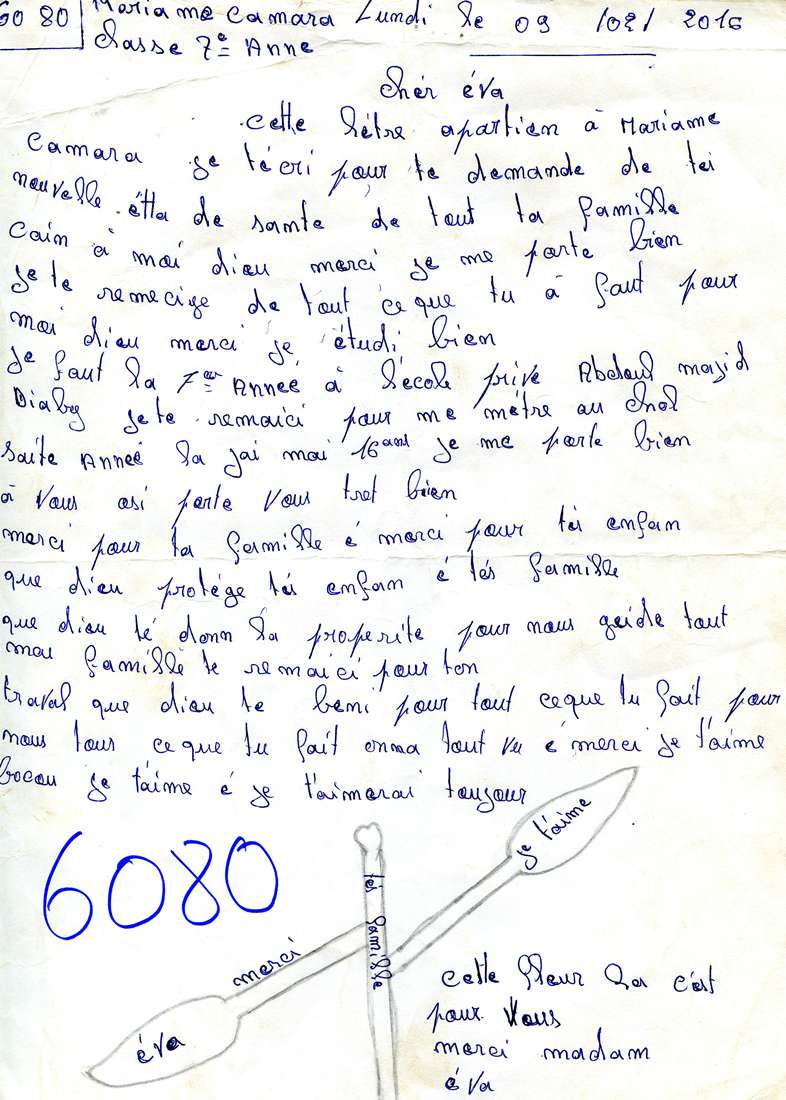 6080 Mariame Camara Lundi le 09 /02/ 2016
Classe 7e Anne
Cher éva
Cette lètre apartien à Mariame
Camara je técri pour te demande de tei
nouvelle étta de sante de tout ta famille
Cain à moi dieu merci je me porte bien
je te remecige de tout ce que tu à faut pour
moi dieu merci je étudi bien
je faut la 7er Année à l'école prive Abdoul majid
Diaby je te remaici pour me mètre au
Année la jai moi 16 ans je me porte bien
à vous osi porte vous tret bien
merci pour ta famille é merci pour téi enfan
que dieu protége téi enfan é tés famille
que dieu té donn la properite pour nous geide tout
mou famille te remaici pour ton
traval que dieu te beni pour tout ceque tu fait pour
nous tous ce que tu fait onna tout vu é merci je t'aime
bocou je t'aime é je t'aimerai toujour
6080
je t'aime
tés famille
merci
éva
Cette fleur la c'est
pour Vous
merci madam
éva